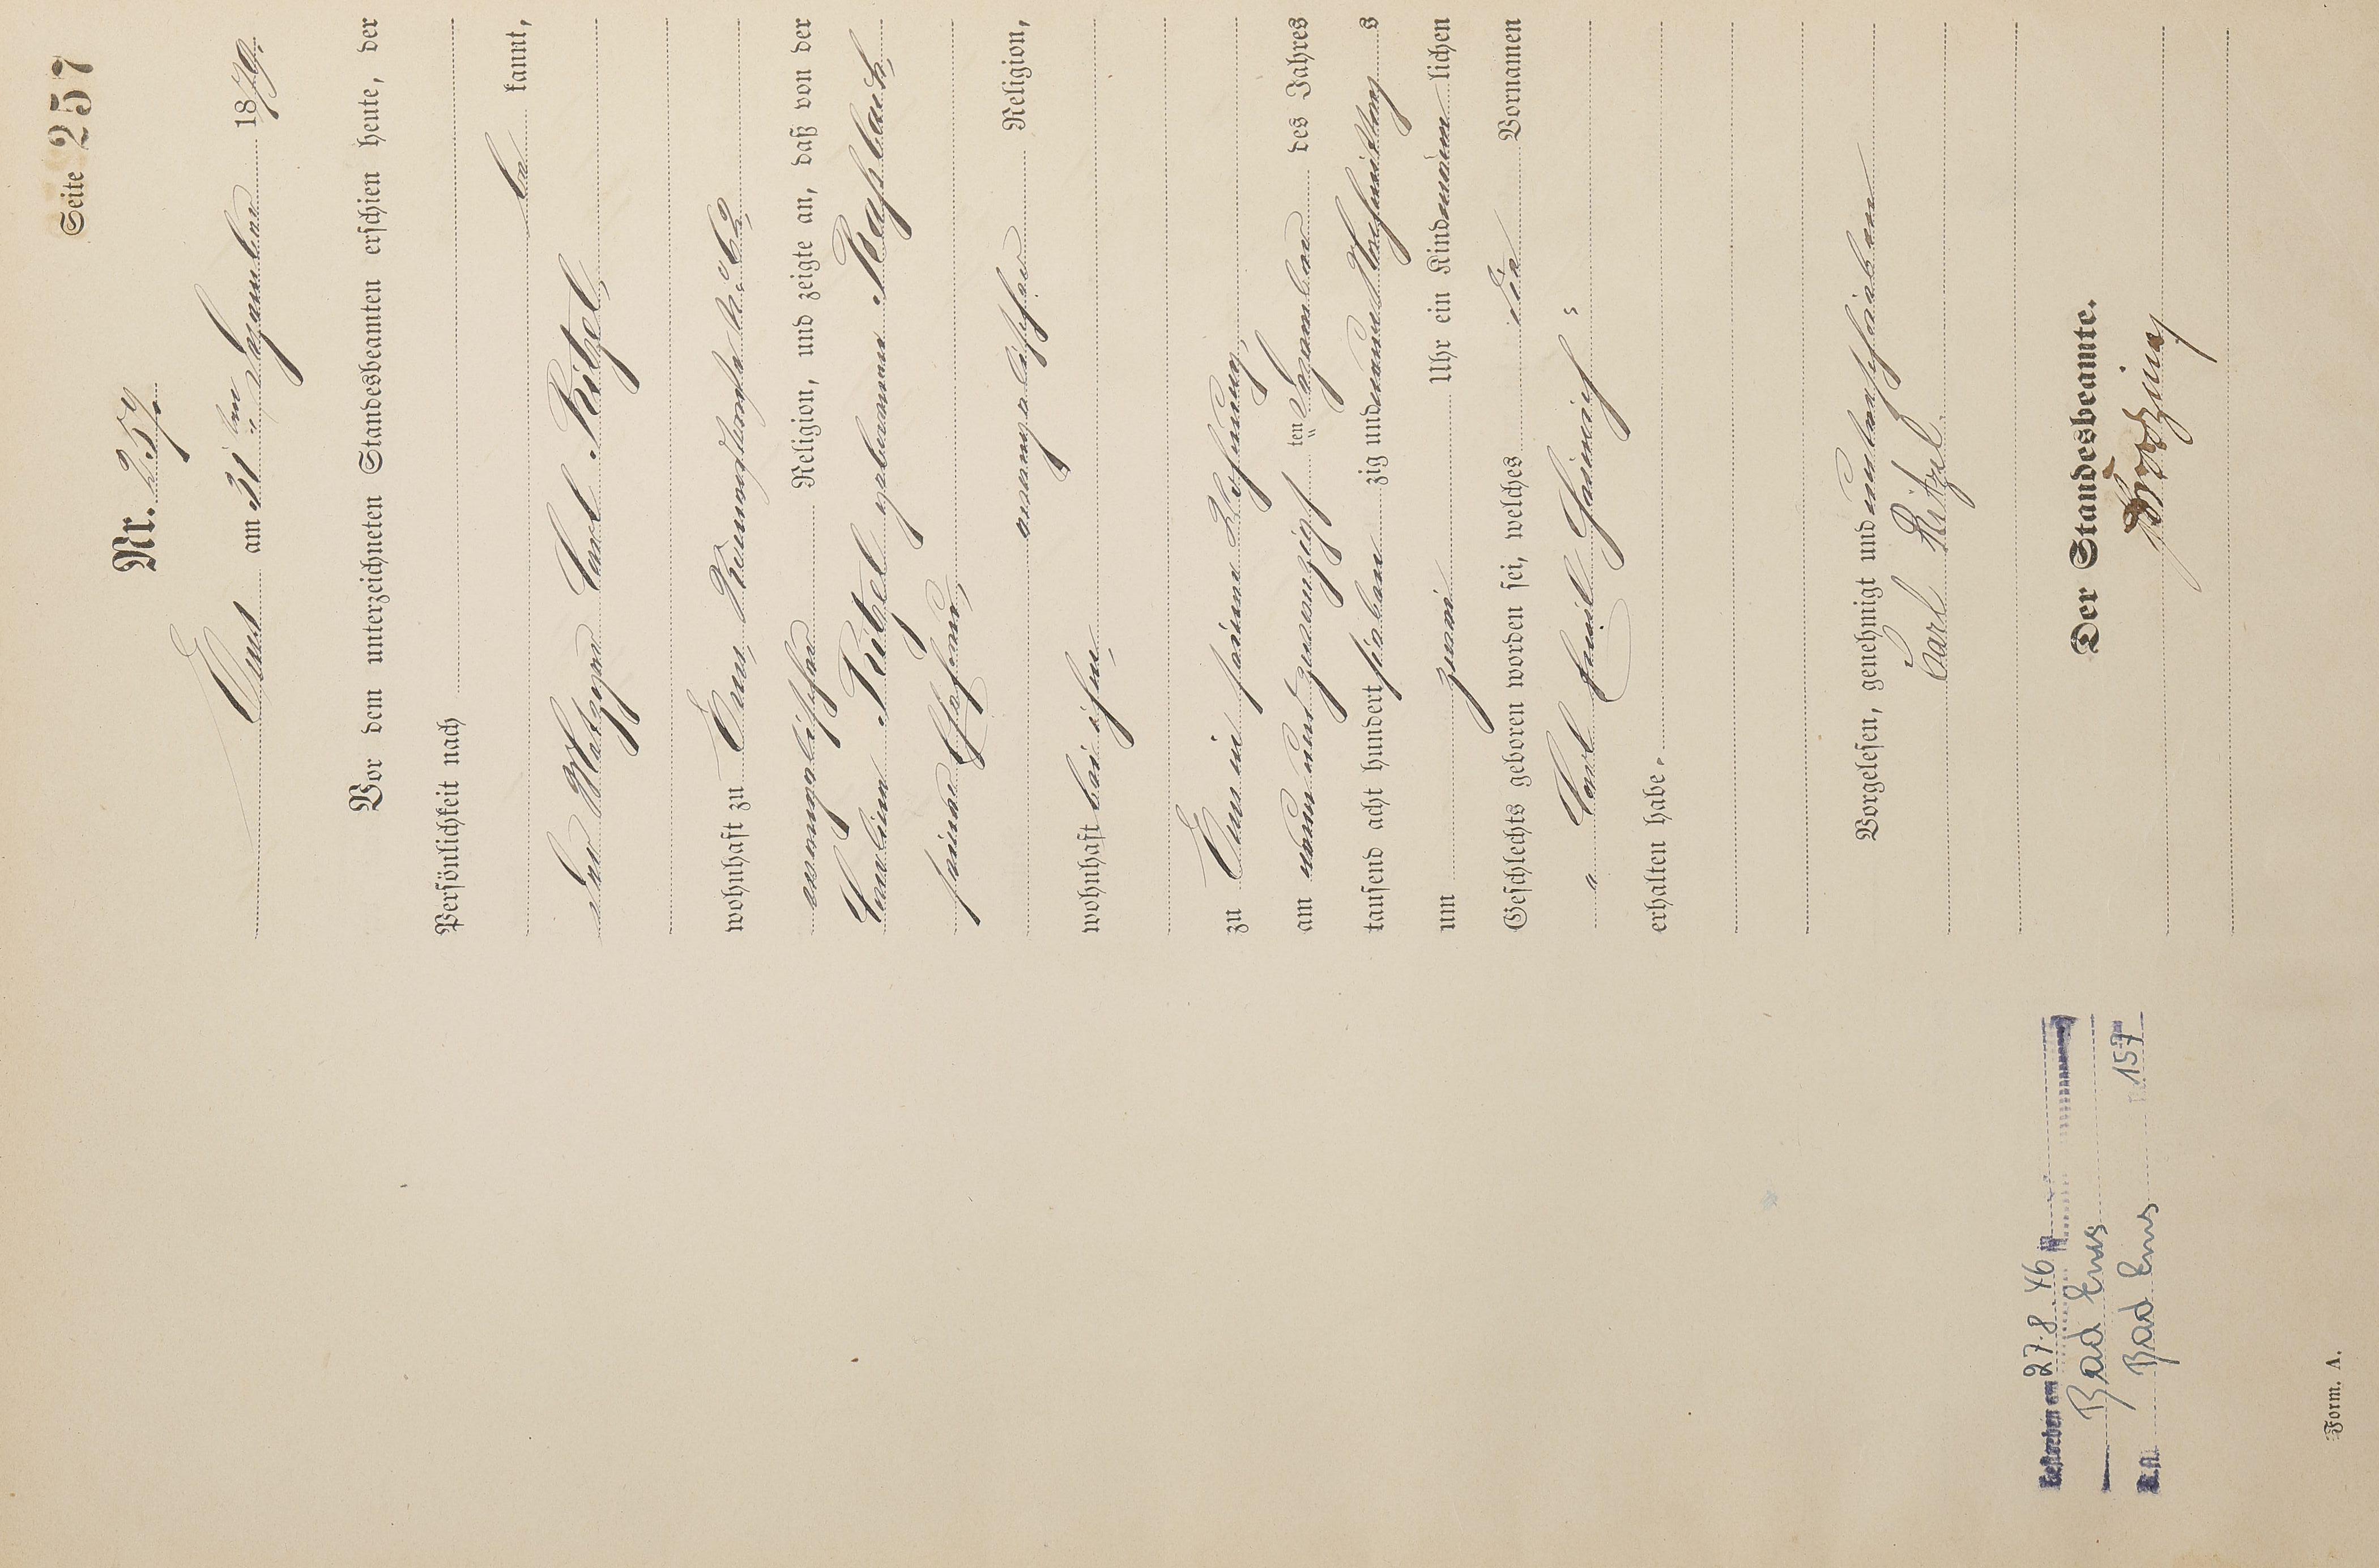 Seite 257
Nr. 257.
Ems am 31ten Dezember 1879.
Vor dem unterzeichneten Standesbeamten erschien heute, der
Persönlichkeit nach
be kannt,
der Metzger Carl Ritzel,
wohnhaft zu Ems,
evangelischer Religion, und zeigte an, daß von der
Caroline Ritzel geborenen
seiner Ehefrau,
evangelischer Religion,
wohnhaft bei ihm,
zu Ems in seiner Wohnung,
am neun und zwanzigsten Dezember des Jahres
tausend acht hundert sieben zig und neun Nachmittags
um zwei Uhr ein Kind männlichen
Geschlechts geboren worden sei, welches die Vornamen
Carl Emil Heinrich
erhalten habe.
Vorgelesen, genehmigt und unterschrieben
Carl Ritzel.
Der Standesbeamte.
Gestorben am 27.8.46 in
Bad Ems
Bad Ems 157
Form. A.